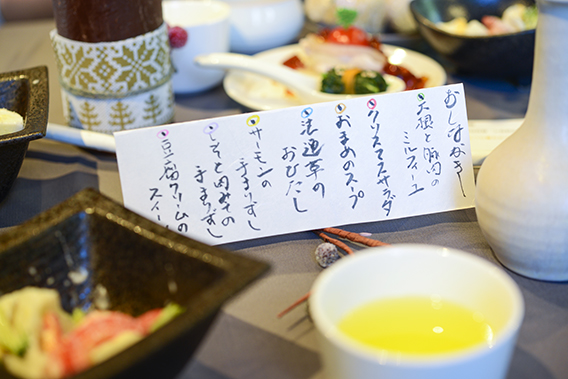 おしながき
大根と豚肉の
ミルフィーユ
クリスマスサラダ
おまめのスープ
法蓮草の
おひたし
サーモンの
手まりずし
しそと
手まりずし
豆腐クリームの
スイー